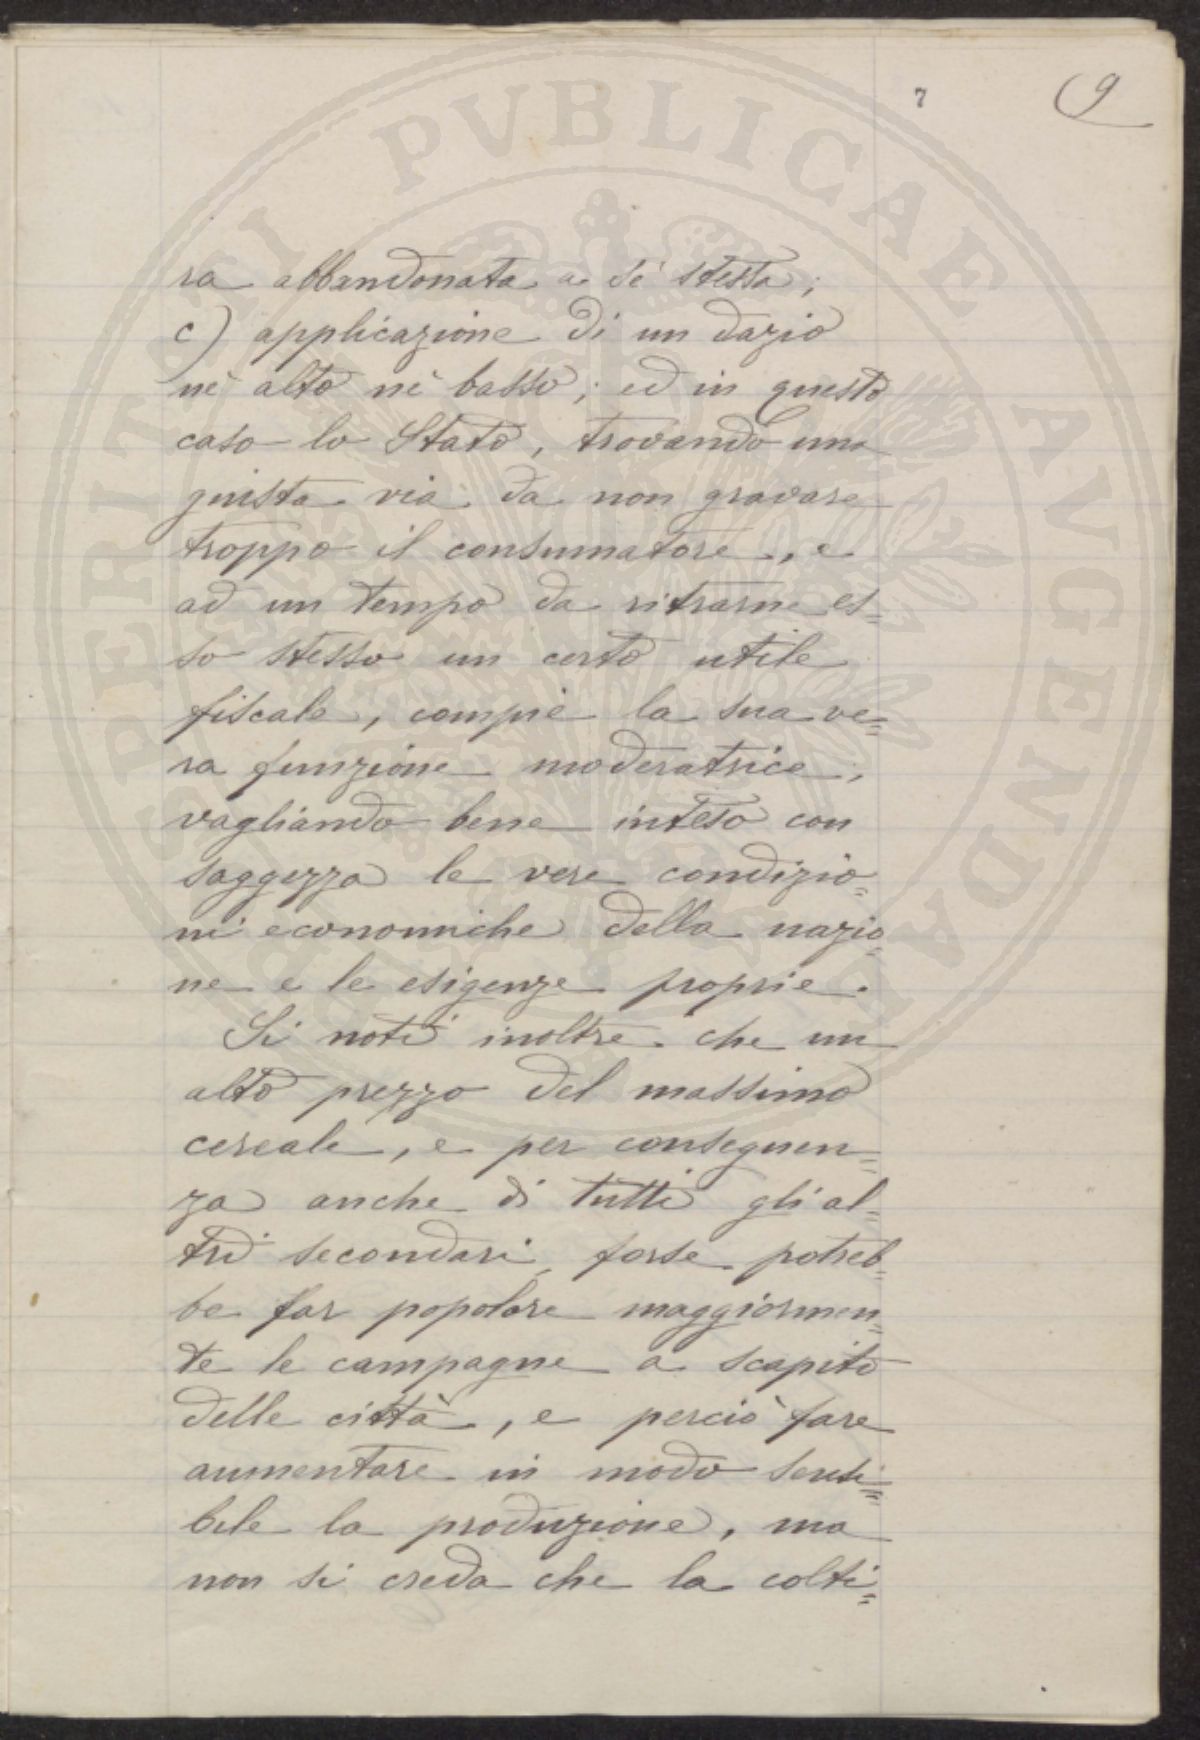 7
9
ra abbandonata a sè stessa;
c) applicazione di un dazio
nè alto nè basso; ed in questo
caso lo Stato, trovando una
giusta via da non gravare
troppo il consumatore, e
ad un tempo da ritrarne es=
so stesso un certo utile
fiscale, compie la sua ve=
ra funzione moderatrice,
vagliando bene inteso con
saggezza le vere condizio=
ni economiche della nazio=
ne e le esigenze proprie.
Si noti inoltre che un
alto prezzo del massimo
cereale, e per conseguen=
za anche di tutti gli al=
tri secondari, forse potreb=
be far popolare maggiormen=
te le campagne a scapito
delle città, e perciò fare
aumentare in modo sensi=
bile la produzione, ma
non si creda che la colti=
PROSPERITATI PVBLICAE AVGENDAE